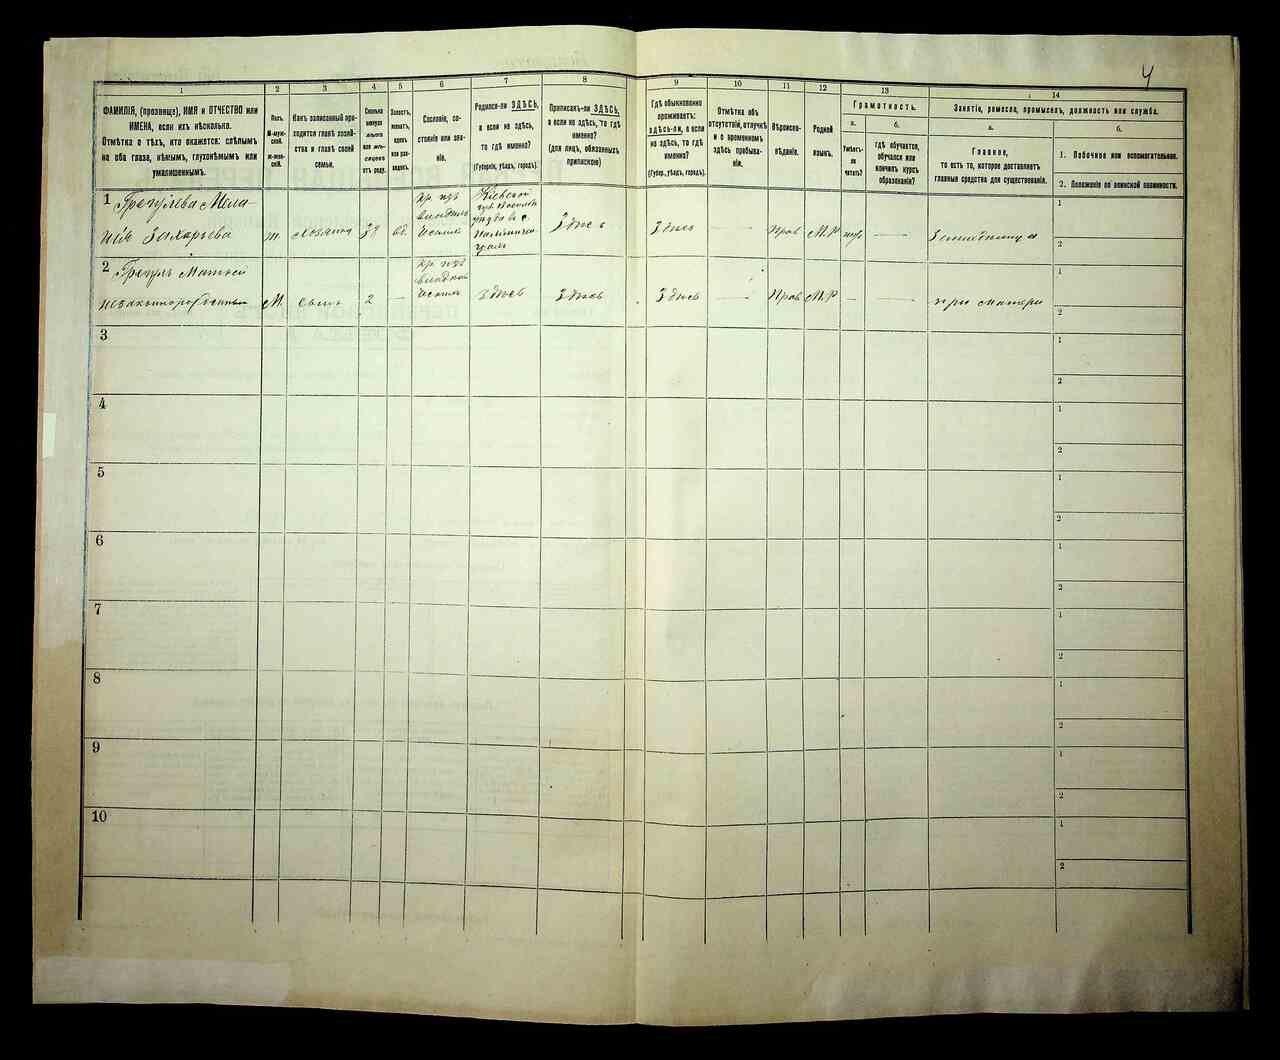 4
1
2
3
4
5
6
7
8
9
10
11
12
13
14
ФАМИЛІЯ, (прозвище), ИМЯ и ОТЧЕСТВО или
ИМЕНА, если ихъ нѣсколько.
Отмѣтка о тѣхъ, кто окажется: слѣпымъ
на оба глаза, нѣмымъ, глухонѣмымъ или
умалишеннымъ.
Полъ.
М-муж-
ской.
ж-жен-
скій.
Какъ записанный при-
ходится главѣ хозяй-
ства и главѣ своей
семьи.
Сколько
минуло
лѣтъ
или мѣ-
сяцевъ
отъ роду.
Холостъ,
женатъ,
вдовъ
или раз-
веденъ.
Сословіе, со-
стояніе или зва-
ніе.
Родился-ли ЗДѢСЬ,
а если не здѣсь,
то гдѣ именно?
(Губернія, уѣздъ, городъ).
Приписанъ-ли ЗДѢСЬ,
а если не здѣсь, то гдѣ
именно?
(для лицъ, обязанныхъ
припискою)
Гдѣ обыкновенно
проживаетъ:
здѣсь-ли, а если
не здѣсь, то гдѣ
именно?
(Губерн., уѣздъ, городъ).
Отмѣтка объ
отсутствіи, отлучкѣ
и о временномъ
здѣсь пребыва-
ніи.
Вѣроиспо-
вѣданіе.
Родной
языкъ.
Грамотность.
а.
б.
Умѣетъ-
ли
читать?
Гдѣ обучается,
обучался или
кончилъ курсъ
образованія?
Занятіе, ремесло, промыселъ, должность или служба.
а.
б.
Главное,
то есть то, которое доставляетъ
главныя средства для существованія.
1. Побочное или вспомогательное.
2. Положеніе по воинской повинности.
1
Мела
нія Захарьева
ж.
Хозяйка
вд.
Кр. изъ
владѣль
Кіевской
Здѣсь
Здѣсь
—
Прав
М.Р
—
Земледѣліе
1
2
2
Матвей
незаконнорожденный
М.
сынъ
2
—
Кр. изъ
Здѣсь
Здѣсь
Здѣсь
—
Прав
М.Р
—
—
при матери
1
2
3
1
2
4
1
2
5
1
2
6
1
2
7
1
2
8
1
2
9
1
2
10
1
2